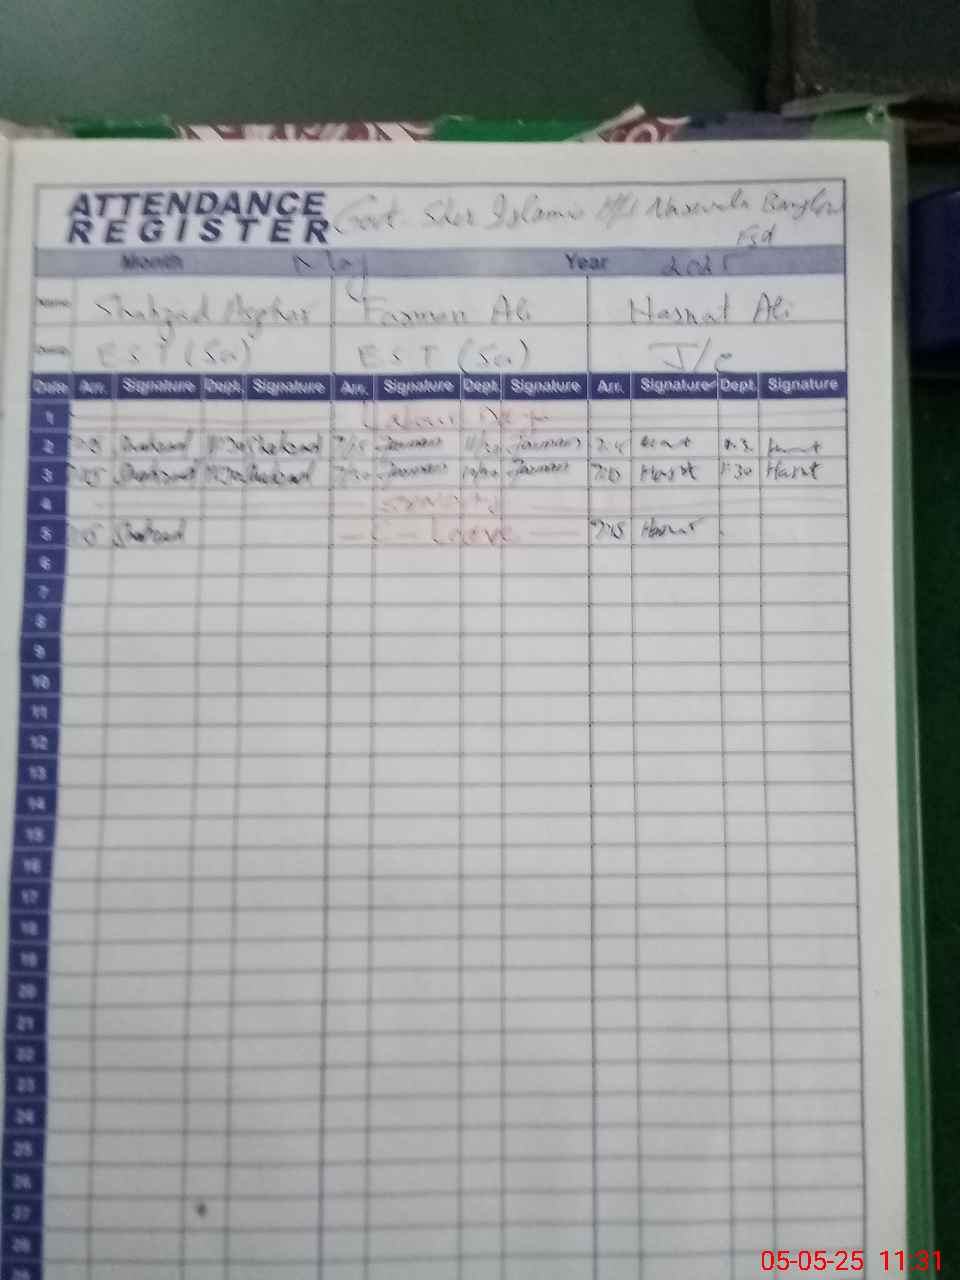 ATTENDANCE
REGISTER
Govt. Sher Islamia Banglow
Fsd
Month May Year 2025
Name Shahzad Asghar Farman Ali Hasnat Ali
EST (Sci) EST (Sci) J/C
Date Arr. Signature Dept. Signature Arr. Signature Dept. Signature Arr. Signature Dept. Signature
1 Labour Day
2 Shahzad Shahzad 7/15 Farman 11/30 Farman
3 Shahzad Shahzad 7/20 Farman Farman 7:15 Hasnat 1:30 Hasnat
4 Sunday
5 Shahzad Leave 7:15 Hasnat
6
7
8
9
10
11
12
13
14
15
16
17
18
19
20
21
22
23
24
25
26
27
28
29
05-05-25 11:31